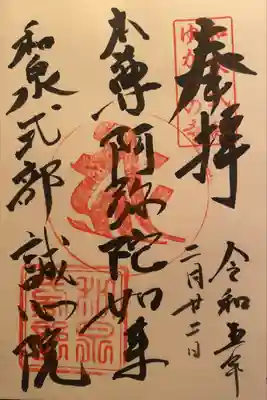 奉拝
令和五年
二月廿二日
本尊阿弥陀如来
和泉式部
誠心院